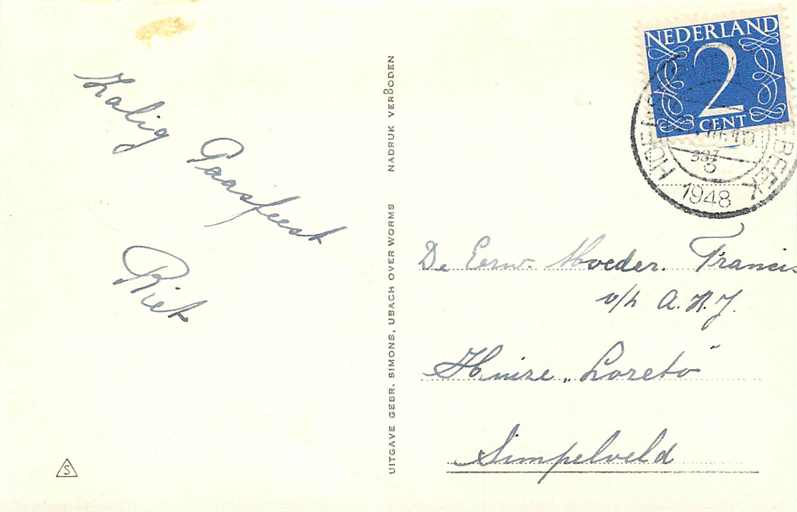 Zalig
Paasfeest
Riet
S
UITGAVE GEBR. SIMONS, UBACH OVER WORMS NADRUK VERBODEN
NEDERLAND
2
CENT
HOENSBROEK
1948
De Eerw. Moeder. Francis
v/h A. K. J.
Huize „Loreto"
Simpelveld